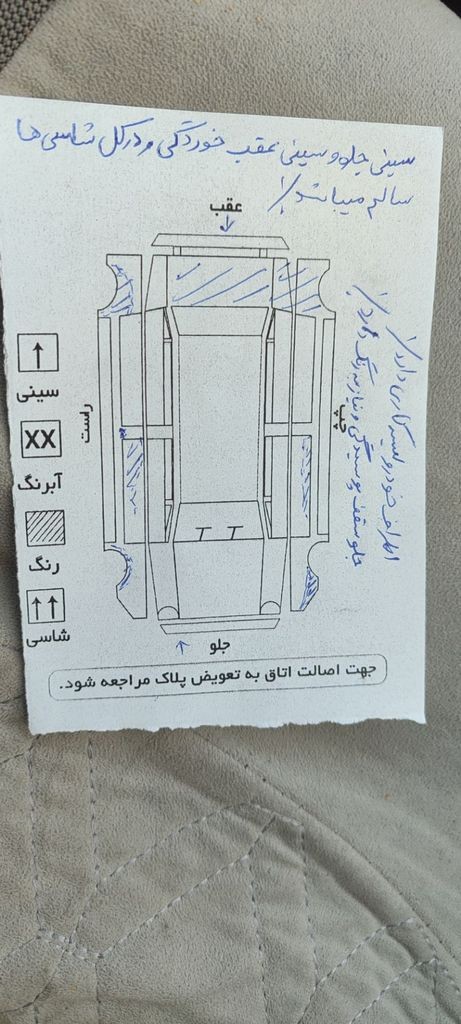 سینی جلو و سینی عقب خوردگی و در کل شاسی ها
سالم میباشد /!
عقب
راست
چپ
اطراف خودرو لیسه گیری دارد /!
جلو سقف پوسیدگی و نیاز به رنگ دارد /!
سینی
XX
آبرنگ
رنگ
شاسی
جلو
جهت اصالت اتاق به تعویض پلاک مراجعه شود.